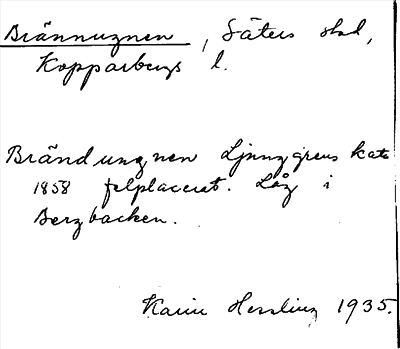 Brännugnen, Säters stad,
Kopparbergs l.
Brändugnen Ljunggrens kata
1858 felplacerat. Låg i
Bergbacken.
Karin Hessling 1935.